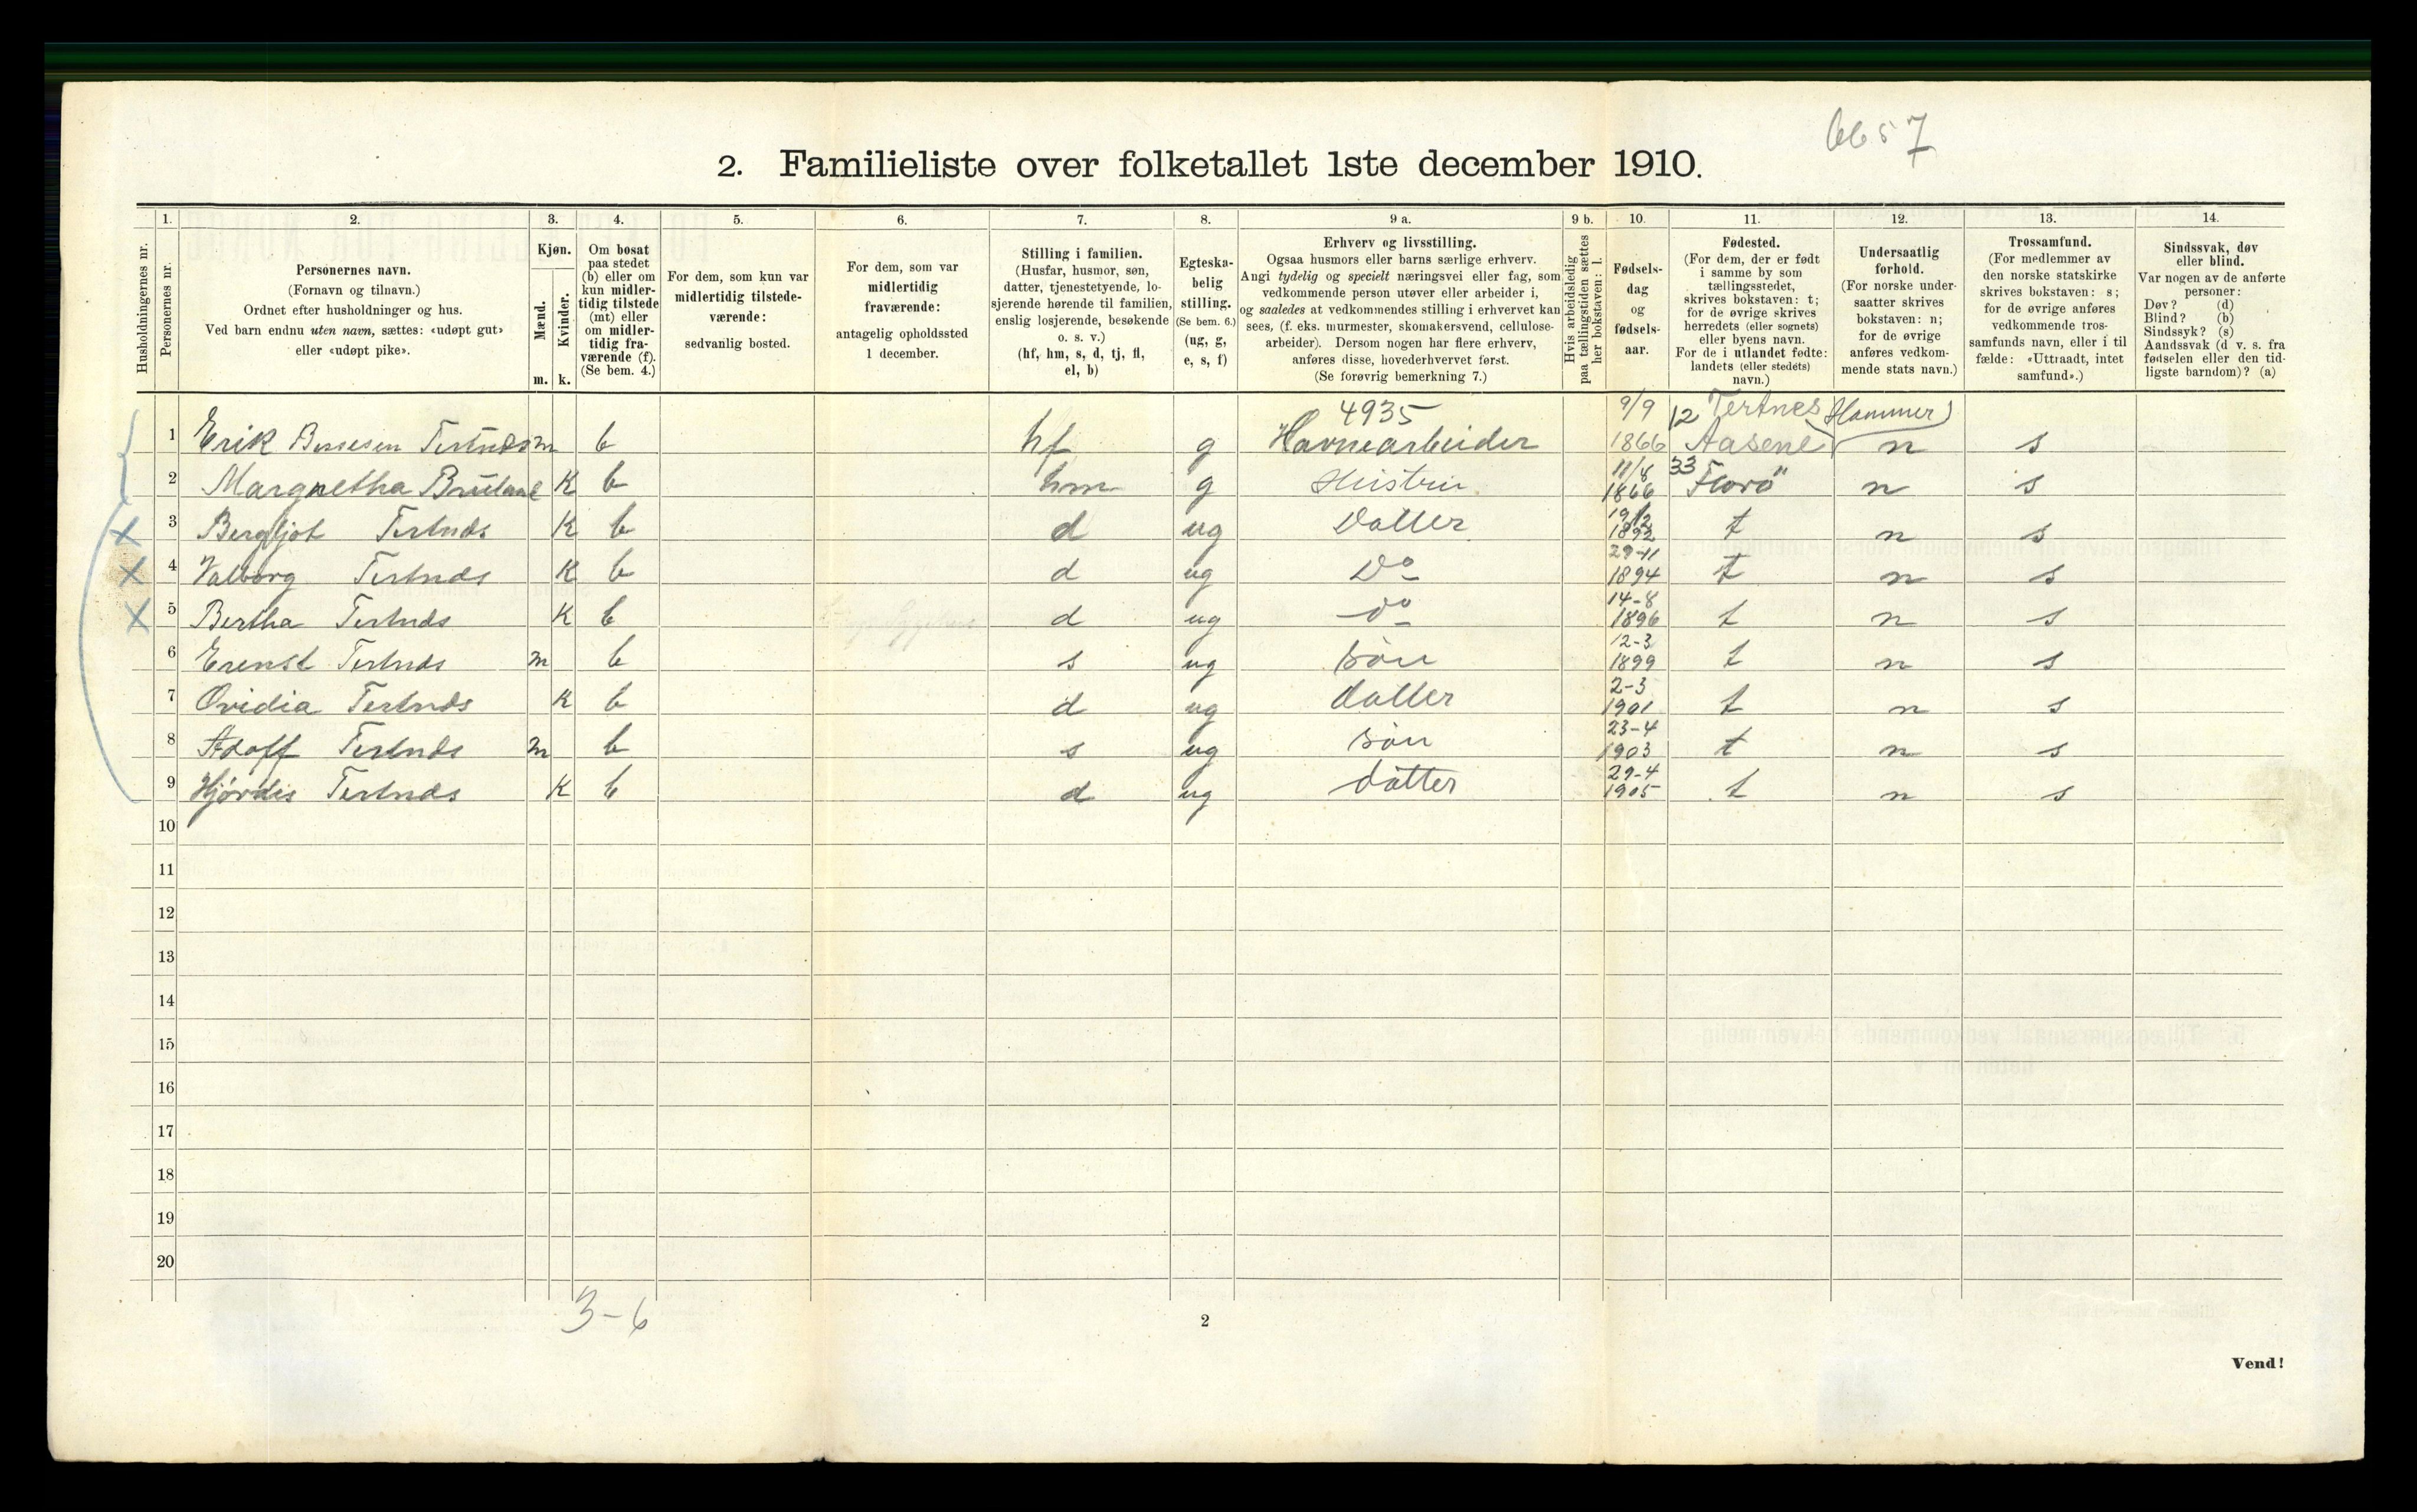 6657
2. Familieliste over folketallet 1ste december 1910.
Husholdningernes nr.
1. Personernes nr.
2. Personernes navn. (Fornavn og tilnavn.) Ordnet efter husholdninger og hus. Ved barn endnu uten navn, sættes: «udøpt gut» eller «udøpt pike».
3. Kjøn. Mænd. m. Kvinder. k.
4. Om bosat paa stedet (b) eller om kun midlertidig tilstede (mt) eller om midlertidig fraværende (f). (Se bem. 4.)
5. For dem, som kun var midlertidig tilstedeværende: sedvanlig bosted.
6. For dem, som var midlertidig fraværende: antagelig opholdssted 1 december.
7. Stilling i familien. (Husfar, husmor, søn, datter, tjenestetyende, losjerende hørende til familien, enslig losjerende, besøkende o. s. v.) (hf, hm, s, d, tj, fl, el, b)
8. Egteskabelig stilling. (Se bem. 6.) (ug, g, e, s, f)
9 a. Erhverv og livsstilling. Ogsaa husmors eller barns særlige erhverv. Angi tydelig og specielt næringsvei eller fag, som vedkommende person utøver eller arbeider i, og saaledes at vedkommendes stilling i erhvervet kan sees, (f. eks. murmester, skomakersvend, cellulosearbeider). Dersom nogen har flere erhverv, anføres disse, hovederhvervet først. (Se forøvrig bemerkning 7.)
9 b. Hvis arbeidsledig paa tællingstiden sættes her bokstaven: l.
10. Fødselsdag og fødselsaar.
11. Fødested. (For dem, der er født i samme by som tællingsstedet, skrives bokstaven: t; for de øvrige skrives herredets (eller sognets) eller byens navn. For de i utlandet fødte: landets (eller stedets) navn.)
12. Undersaatlig forhold. (For norske undersaatter skrives bokstaven: n; for de øvrige anføres vedkommende stats navn.)
13. Trossamfund. (For medlemmer av den norske statskirke skrives bokstaven: s; for de øvrige anføres vedkommende trossamfunds navn, eller i tilfælde: «Uttraadt, intet samfund».)
14. Sindssvak, døv eller blind. Var nogen av de anførte personer: Døv? (d) Blind? (b) Sindssyk? (s) Aandssvak (d v. s. fra fødselen eller den tidligste barndom)? (a)
4935 9/9 12 Tertnes (Hammer)
1 Erik Tertnæs m b hf g Havnearbeider 1866 Aasene n s
2 Margretha K b hm g Hustru 11/8 1866 33 Florö n s
3 Bergljot Tertnæs K b d ug Datter 19/2 1892 t n s
4 Valborg Tertnæs K b d ug Do 29-11 1894 t n s
5 Bertha Tertnæs K b d ug do 14-8 1896 t n s
6 Erenst Tertnæs m b s ug søn 12-3 1899 t n s
7 Ovidia Tertnæs K b d ug datter 2-3 1901 t n s
8 Adoff Tertnæs m b s ug søn 23-4 1903 t n s
9 Hjørdis Tertnæs K b d ug datter 29-4 1905 t n s
10
11
12
13
14
15
16
17
18
19
20
3-6
2
Vend!